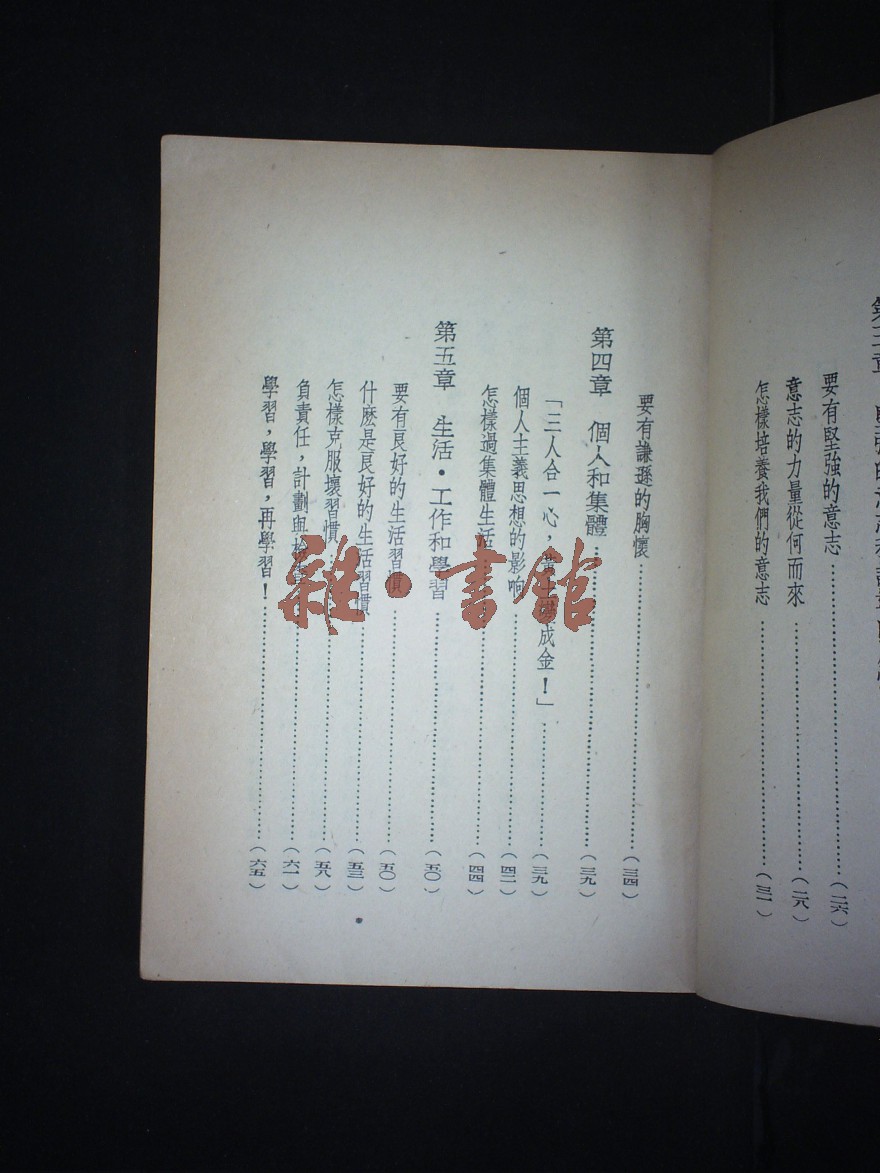 第三章
要有堅強的意志……(二六)
意志的力量從何而來……(二八)
怎樣培養我們的意志……(三一)
要有謙遜的胸懷……(三四)
第四章 個人和集體……(三九)
「三人合一心，成金！」……(三九)
個人主義思想的影响……(四二)
怎樣過集體生活……(四四)
第五章 生活・工作和學習……(五〇)
要有良好的生活習慣……(五〇)
什麽是良好的生活習慣……(五三)
怎樣克服壞習慣……(五八)
負責任，計劃與檢……(六一)
學習，學習，再學習！……(六五)
雜・書館